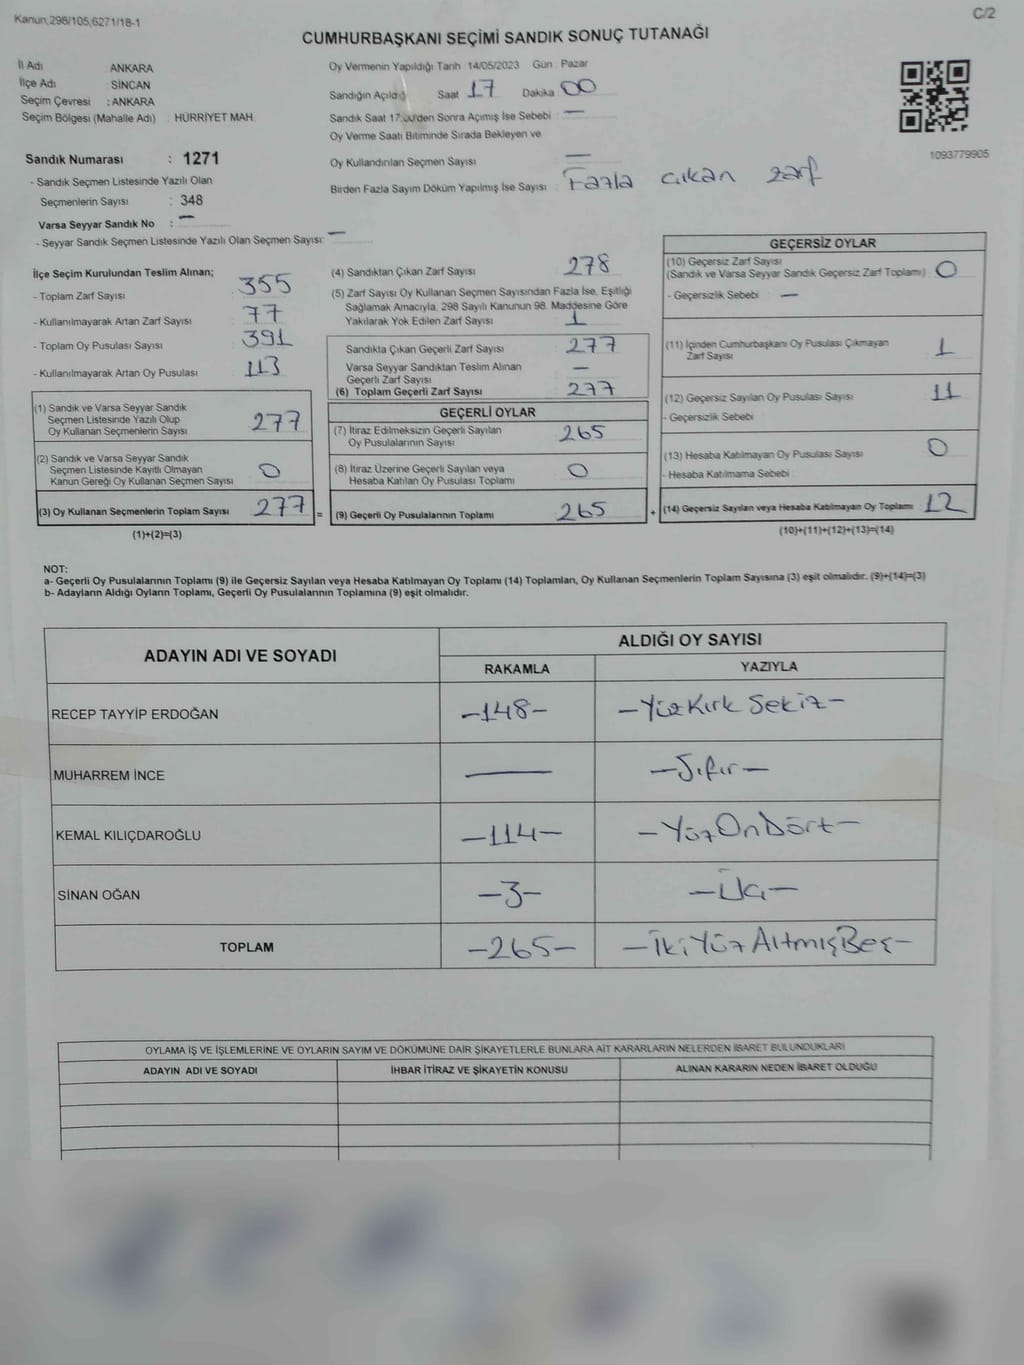 Kanun,298/105,6271/18-1
C/2
CUMHURBAŞKANI SEÇİMİ SANDIK SONUÇ TUTANAĞI
İl Adı : ANKARA
İlçe Adı : SİNCAN
Seçim Çevresi : ANKARA
Seçim Bölgesi (Mahalle Adı) : HÜRRİYET MAH.
Sandık Numarası : 1271
- Sandık Seçmen Listesinde Yazılı Olan
Seçmenlerin Sayısı : 348
Varsa Seyyar Sandık No : —
- Seyyar Sandık Seçmen Listesinde Yazılı Olan Seçmen Sayısı: —
Oy Vermenin Yapıldığı Tarih : 14/05/2023 Gün : Pazar
Sandığın Açıldığı Saat 17 Dakika 00
Sandık Saat 17:00'den Sonra Açımış İse Sebebi : —
Oy Verme Saati Bitiminde Sırada Bekleyen ve
Oy Kullandırılan Seçmen Sayısı —
Birden Fazla Sayım Döküm Yapılmış İse Sayısı : Fazla çıkan zarf
1093779905
İlçe Seçim Kurulundan Teslim Alınan;
- Toplam Zarf Sayısı 355
- Kullanılmayarak Artan Zarf Sayısı 77
- Toplam Oy Pusulası Sayısı 391
- Kullanılmayarak Artan Oy Pusulası 113
(1) Sandık ve Varsa Seyyar Sandık
Seçmen Listesinde Yazılı Olup
Oy Kullanan Seçmenlerin Sayısı 277
(2) Sandık ve Varsa Seyyar Sandık
Seçmen Listesinde Kayıtlı Olmayan
Kanun Gereği Oy Kullanan Seçmen Sayısı 0
(3) Oy Kullanan Seçmenlerin Toplam Sayısı 277 =
(1)+(2)=(3)
(4) Sandıktan Çıkan Zarf Sayısı 278
(5) Zarf Sayısı Oy Kullanan Seçmen Sayısından Fazla İse, Eşitliği
Sağlamak Amacıyla, 298 Sayılı Kanunun 98. Maddesine Göre
Yakılarak Yok Edilen Zarf Sayısı 1
Sandıkta Çıkan Geçerli Zarf Sayısı 277
Varsa Seyyar Sandıktan Teslim Alınan
Geçerli Zarf Sayısı —
(6) Toplam Geçerli Zarf Sayısı 277
GEÇERLİ OYLAR
(7) İtiraz Edilmeksizin Geçerli Sayılan
Oy Pusulalarının Sayısı 265
(8) İtiraz Üzerine Geçerli Sayılan veya
Hesaba Katılan Oy Pusulası Toplamı 0
(9) Geçerli Oy Pusulalarının Toplamı 265 +
GEÇERSİZ OYLAR
(10) Geçersiz Zarf Sayısı
(Sandık ve Varsa Seyyar Sandık Geçersiz Zarf Toplamı) 0
- Geçersizlik Sebebi : —
(11) İçinden Cumhurbaşkanı Oy Pusulası Çıkmayan
Zarf Sayısı 1
(12) Geçersiz Sayılan Oy Pusulası Sayısı 11
- Geçersizlik Sebebi
(13) Hesaba Katılmayan Oy Pusulası Sayısı 0
- Hesaba Katılmama Sebebi
(14) Geçersiz Sayılan veya Hesaba Katılmayan Oy Toplamı 12
(10)+(11)+(12)+(13)=(14)
NOT:
a- Geçerli Oy Pusulalarının Toplamı (9) ile Geçersiz Sayılan veya Hesaba Katılmayan Oy Toplamı (14) Toplamları, Oy Kullanan Seçmenlerin Toplam Sayısına (3) eşit olmalıdır. (9)+(14)=(3)
b- Adayların Aldığı Oyların Toplamı, Geçerli Oy Pusulalarının Toplamına (9) eşit olmalıdır.
ADAYIN ADI VE SOYADI ALDIĞI OY SAYISI
RAKAMLA YAZIYLA
RECEP TAYYİP ERDOĞAN -148- -YüzKırk Sekiz-
MUHARREM İNCE — -Sıfır-
KEMAL KILIÇDAROĞLU -114- -YüzOnDört-
SİNAN OĞAN -3- -Üç-
TOPLAM -265- -İkiYüzAltmışBeş-
OYLAMA İŞ VE İŞLEMLERİNE VE OYLARIN SAYIM VE DÖKÜMÜNE DAİR ŞİKAYETLERLE BUNLARA AİT KARARLARIN NELERDEN İBARET BULUNDUKLARI
ADAYIN ADI VE SOYADI İHBAR İTİRAZ VE ŞİKAYETİN KONUSU ALINAN KARARIN NEDEN İBARET OLDUĞU